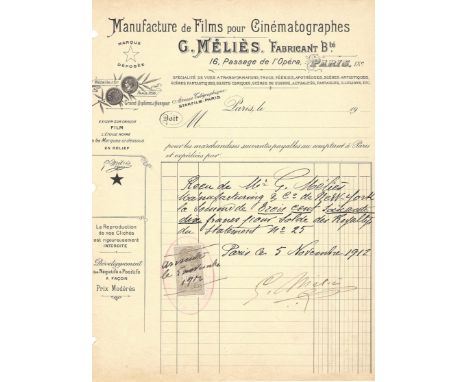 Manufacture de Films pour Cinématographes
G. MÉLIÈS, FABRICANT Bté
16, Passage de l'Opéra, PARIS, IXe
MARQUE
DÉPOSÉE
SPÉCIALITÉ DE VUES A TRANSFORMATIONS, TRUCS, FÉERIES, APOTHÉOSES, SCÈNES ARTISTIQUES
SCÈNES FANTASTIQUES, SUJETS COMIQUES, SCÈNES DE GUERRE, ACTUALITÉS, FANTAISIES, ILLUSIONS, ETC.
Grand Diplôme d'honneur
Adresse Télégraphique
STARFILM-PARIS
Paris, le 19
Doit M
EXIGER SUR CHAQUE
FILM
L'ÉTOILE NOIRE
ou les Marques ci-dessous
EN RELIEF
pour les marchandises suivantes payables au comptant à Paris
et expédiées par
G. Méliès
Reçu de Mr G. Méliès
Manufacturing & Co de New-York
la somme de trois cent soixante
francs pour solde des Royalties
du Statement No 25
Paris ce 5 Novembre 1912
La Reproduction
de nos Clichés
est rigoureusement
INTERDITE
Développement
des Négatifs & Positifs
A FAÇON
Prix Modérés
le 5 novembre
1912
G. Méliès